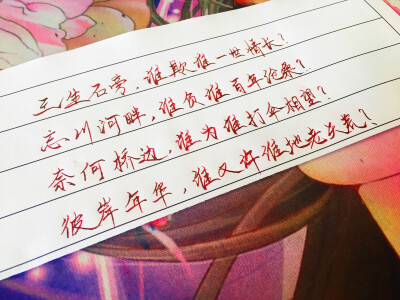 三生石旁，谁欺谁一世情长？
忘川河畔，谁负谁百年沧桑？
奈何桥边，谁为谁打伞相望？
彼岸年华，谁又许谁地老天荒？